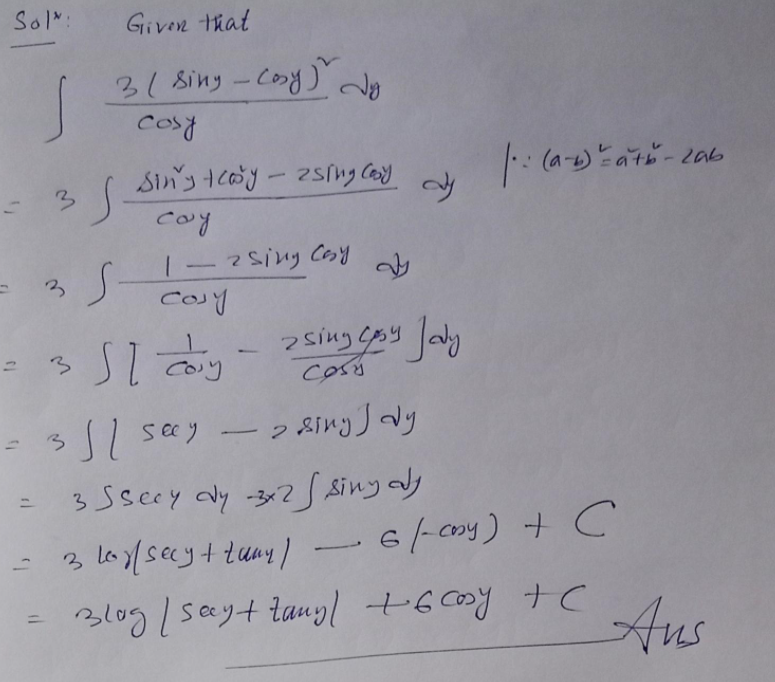 Solⁿ: Given that
∫ 3(siny – cosy)² / cosy dy
= 3 ∫ sin²y + cos²y – 2siny cosy / cosy dy |∵ (a-b)² = a²+b² - 2ab
= 3 ∫ 1 – 2siny cosy / cosy dy
= 3 ∫ [ 1/cosy – 2siny cosy / cosy ] dy
= 3 ∫ [ secy – 2siny ] dy
= 3 ∫ secy dy - 3×2 ∫ siny dy
= 3 log|secy + tany| – 6(-cosy) + C
= 3log |secy + tany| + 6cosy + C
Ans